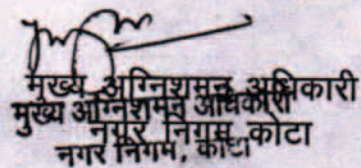 मुख्य अग्निशमन अधिकारी
मुख्य अग्निशमन अधिकारी
नगर निगम कोटा
नगर निगम, कोटा